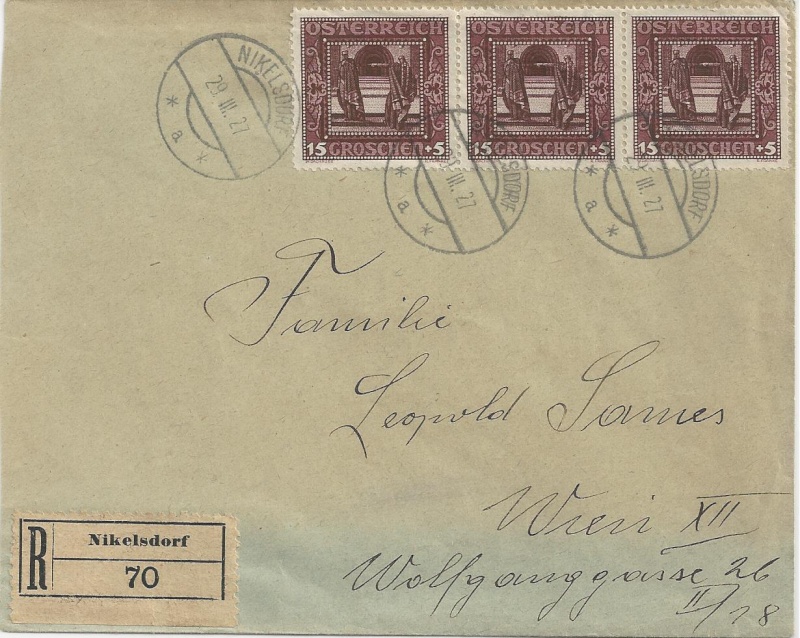 ÖSTERREICH ÖSTERREICH ÖSTERREICH
15 GROSCHEN +5 15 GROSCHEN +5 15 GROSCHEN +5
NIKELSDORF
29.III.27
* a *
LSDORF
III.27
* a *
LSDORF
III.27
* a *
Familie
Leopold Sames
Wien XII
Wolfganggasse 26
II/18
R Nikelsdorf
70